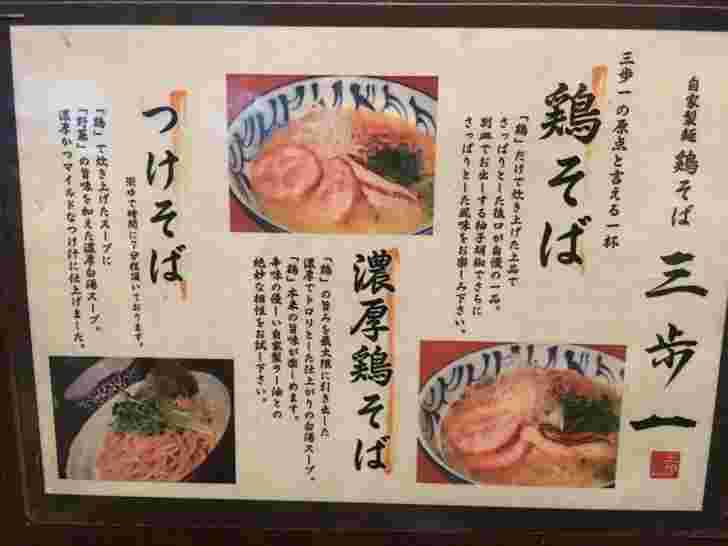 自家製麺 鶏そば 三歩一
三歩一の原点と言える一杯
鶏そば
「鶏」だけで炊き上げた上品で
さっぱりとした後口が自慢の一品。
別皿でお出しする柚子胡椒でさらに
さっぱりとした風味をお楽しみ下さい。
濃厚鶏そば
「鶏」の旨みを最大限に引き出した
濃厚でトロリとした仕上がりの白湯スープ。
「鶏」本来の旨味が楽しめます。
辛味の優しい自家製ラー油との
絶妙な相性をお試し下さい。
つけそば
※ゆで時間に7分程頂いております。
「鶏」で炊き上げたスープに
「野菜」の旨味を加えた濃厚白湯スープ。
濃厚かつマイルドなつけ汁に仕上げました。